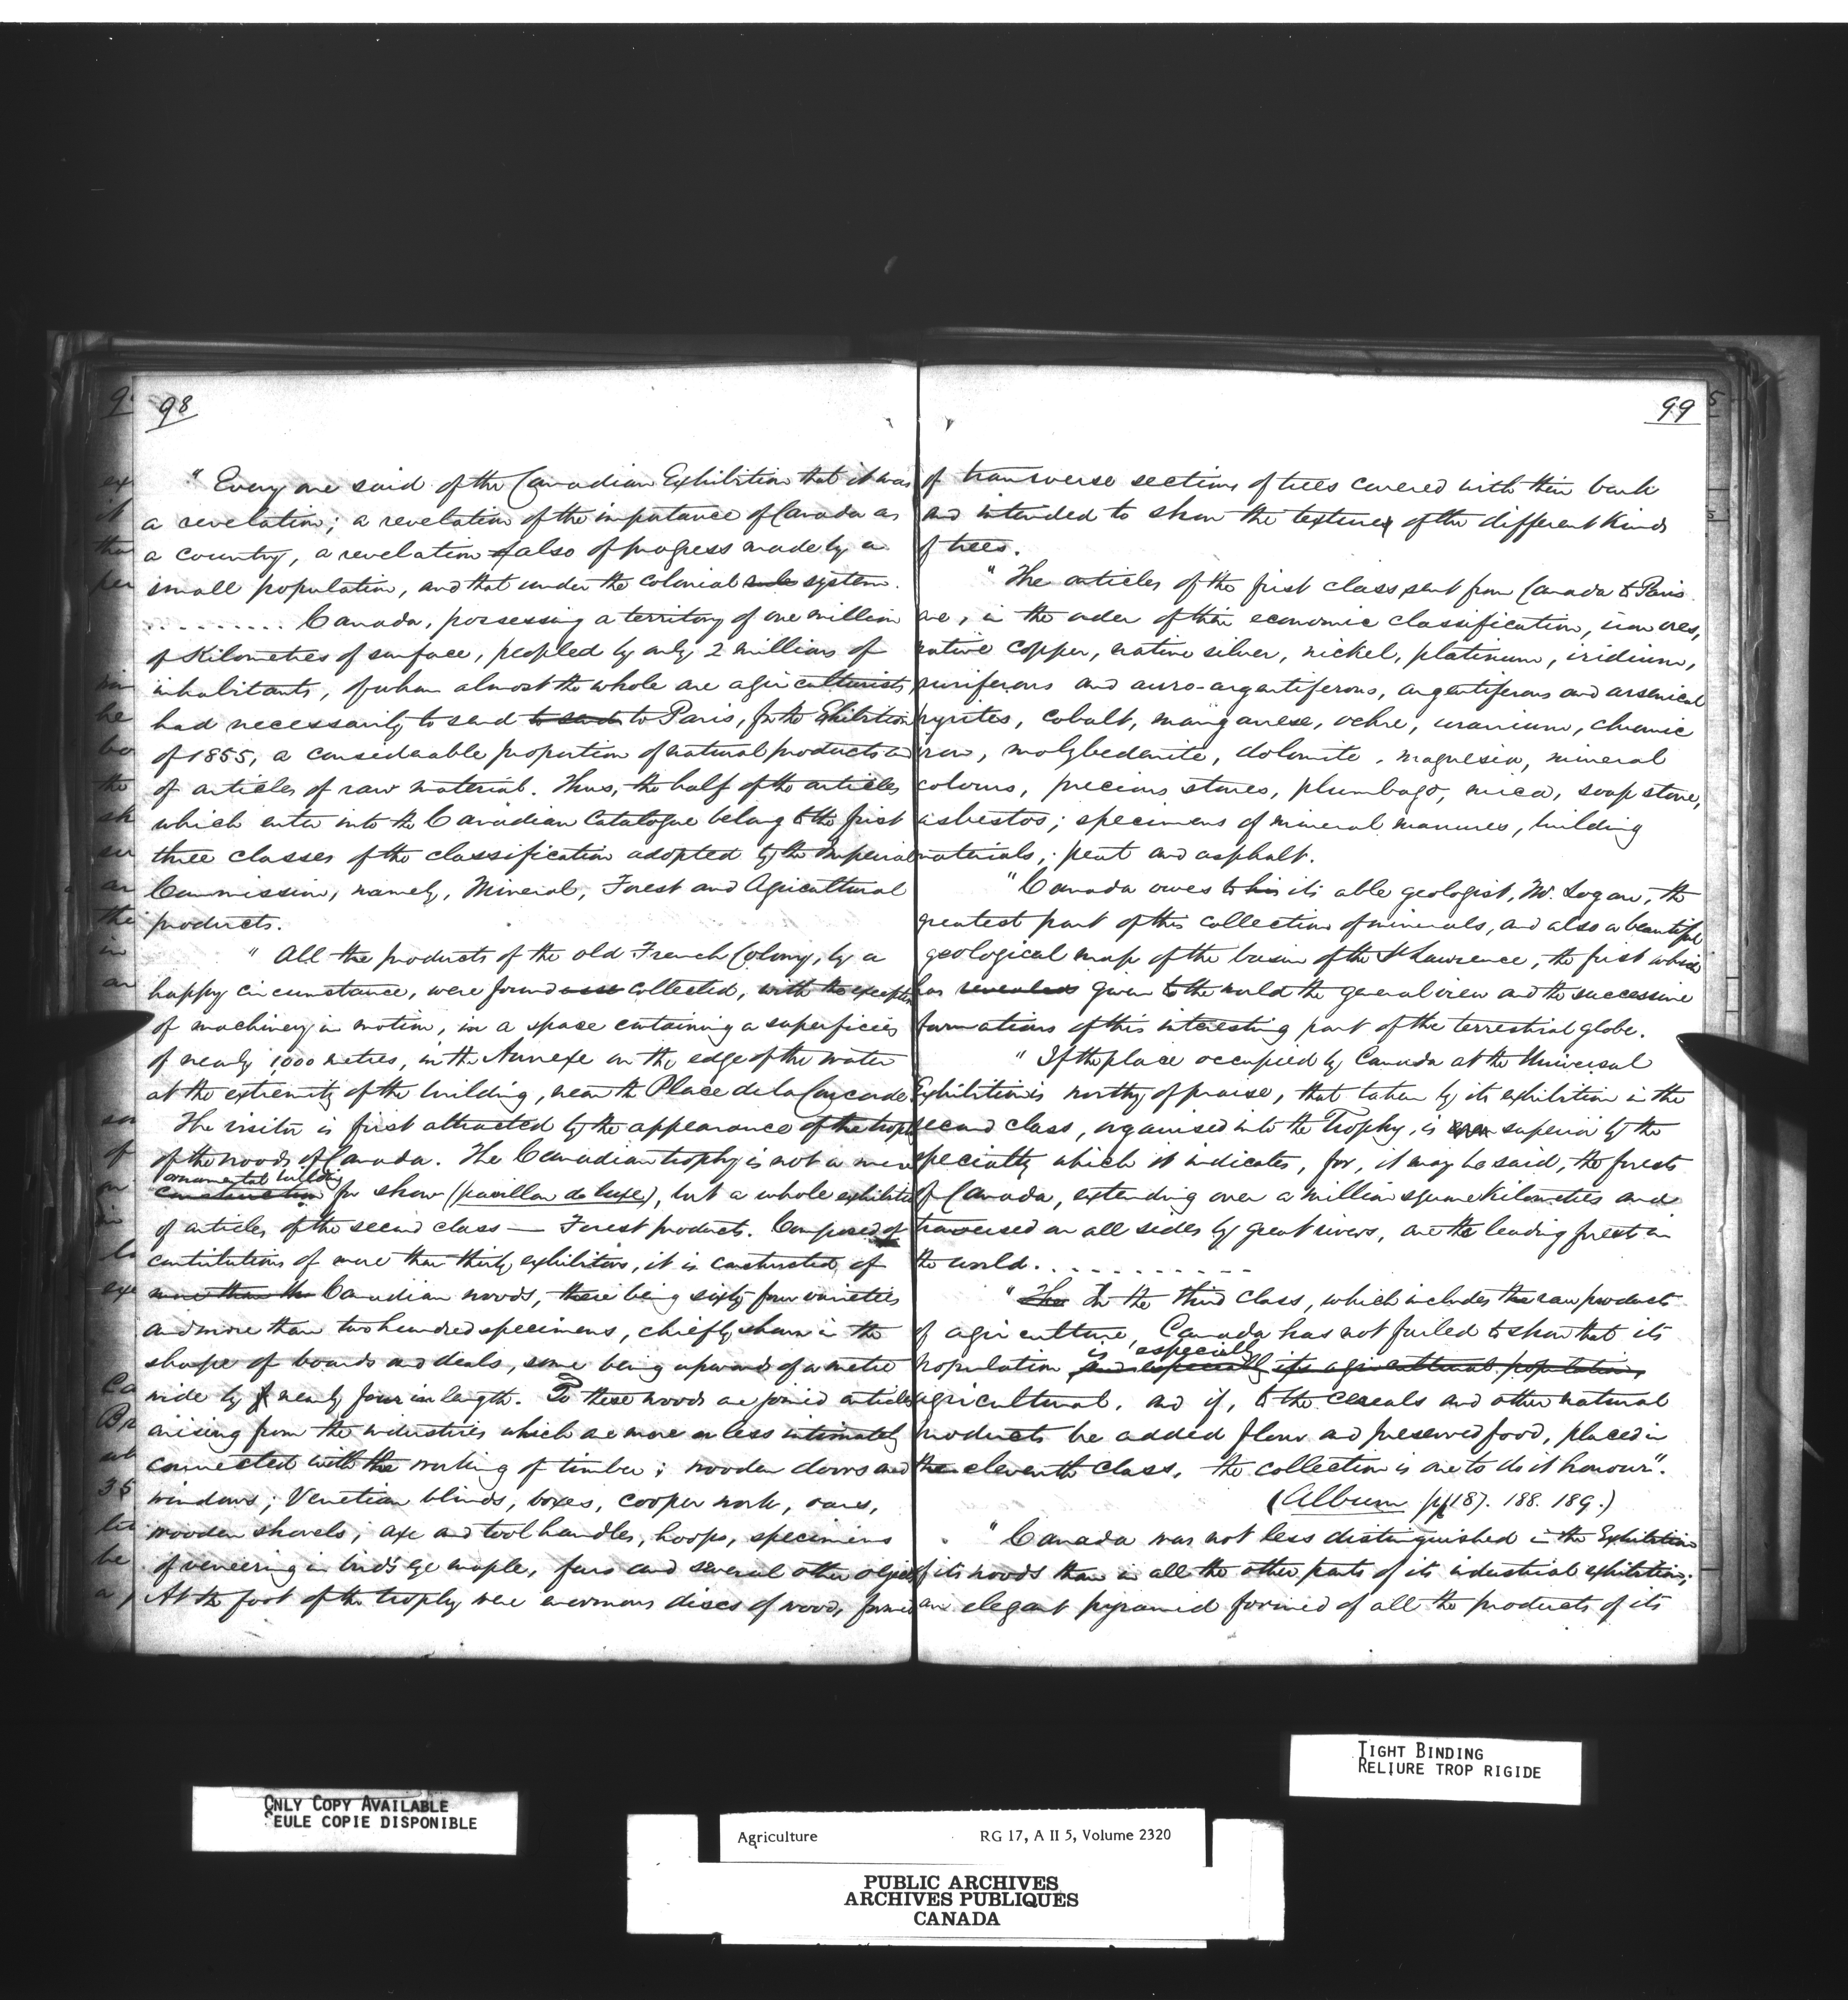 98
" Every one said of the Canadian Exhibition that it was
a revelation; a revelation of the importance of Canada as
a country, a revelation of also of progress made by a
small population, and that under the colonial rule system.
......... Canada, possessing a territory of one million
of Kilometres of surface, peopled by only 2 millions of
inhabitants, of whom almost the whole are agriculturists
had necessarily to send to send to Paris, for the Exhibition
of 1855, a considerable proportion of natural products and
of articles of raw material. Thus, the half of the articles
which enter into the Canadian Catalogue belong to the first
three classes of the classification adopted by the Imperial
Commission, namely, Mineral, Forest and Agricultural
products.
" All the products of the old French Colony, by a
happy circumstance, were found collected, with the exception
of machinery in motion, in a space containing a superficies
of nearly 1000 metres, in the Annexe on the edge of the water
at the extremity of the building, near the Place de la Concorde.
The visitor is first attracted by the appearance of the trophy
of the woods of Canada. The Canadian trophy is not a mere
ornamental building
construction for show (pavillon de luxe), but a whole exhibition
of articles of the second class — Forest products. Composed of
contributions of more than thirty exhibitors, it is constructed of
more than the Canadian woods, there being sixty four varieties
and more than two hundred specimens, chiefly shown in the
shape of boards and deals, some being upwards of a metre
wide by nearly four in length. To these woods are joined articles
arising from the industries which are more or less intimately
connected with the working of timber; wooden doors and
windows; Venetian blinds, boxes, cooper work, oars,
wooden shovels; axe and tool handles, hoops, specimens
of veneering in bird's eye maple, furs and several other objects
At the foot of the trophy were enormous discs of wood, formed
99
of transverse sections of trees covered with their bark
and intended to show the texture of the different kinds
of trees.
" The articles of the first class sent from Canada to Paris
are, in the order of their economic classification, iron ores,
native copper, native silver, nickel, platinum, iridium,
auriferous and auro-argentiferous, argentiferous and arsenical
pyrites, cobalt, manganese, ochre, uranium, chromic
iron, molybedenite, dolomite, magnesia, mineral
colours, precious stones, plumbago, mica, soap stone,
asbestos; specimens of mineral manures, building
materials; peat and asphalt.
" Canada owes to his its able geologist, Mr. Logan, the
greatest part of this collection of minerals, and also a beautiful
geological map of the basin of the St Lawrence, the first which
has revealed given to the world the general view and the successive
formations of this interesting part of the terrestrial globe.
" If the place occupied by Canada at the Universal
Exhibition is worthy of praise, that taken by its exhibition in the
second class, organised into the Trophy, is superior by the
specialty which it indicates, for, it may be said, the forests
of Canada, extending over a million square Kilometres and
traversed on all sides by great rivers, are the leading forests in
the world. ..........
" The In the third class, which includes the raw products
of agriculture, Canada has not failed to show that its
is especially
population and especially its agricultural population,
agricultural, and if, to the cereals and other natural
products be added flour and preserved food, placed in
the eleventh class, the collection is one to do it honour".
(Album pp 187. 188. 189.)
" Canada was not less distinguished in the Exhibition
of its woods than in all the other parts of its industrial exhibition;
an elegant pyramid formed of all the products of its
ONLY COPY AVAILABLE
SEULE COPIE DISPONIBLE
TIGHT BINDING
RELIURE TROP RIGIDE
Agriculture RG 17, A II 5, Volume 2320
PUBLIC ARCHIVES
ARCHIVES PUBLIQUES
CANADA